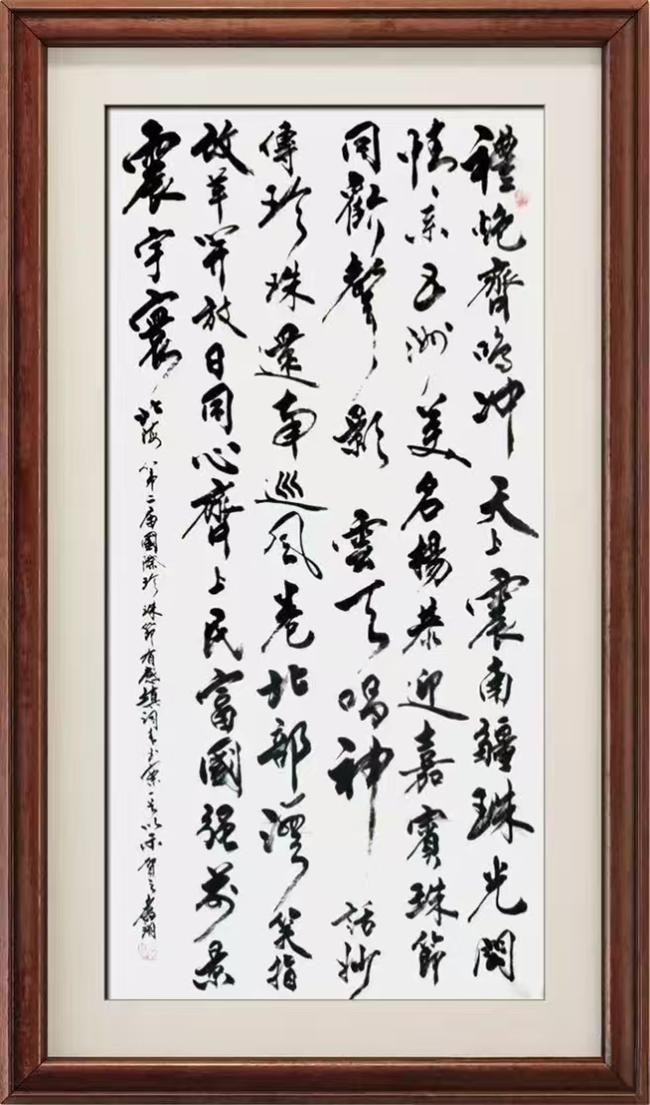 禮炮齊鳴沖天上震南疆珠光閃
情系五洲美名揚恭迎嘉賓珠節
同歡聲影雲天唱神話妙
傳珍珠還南巡風卷北部灣笑指
改革開放日同心齊上民富國强前景
震宇寰
北海第二届國際珍珠節有感填詞